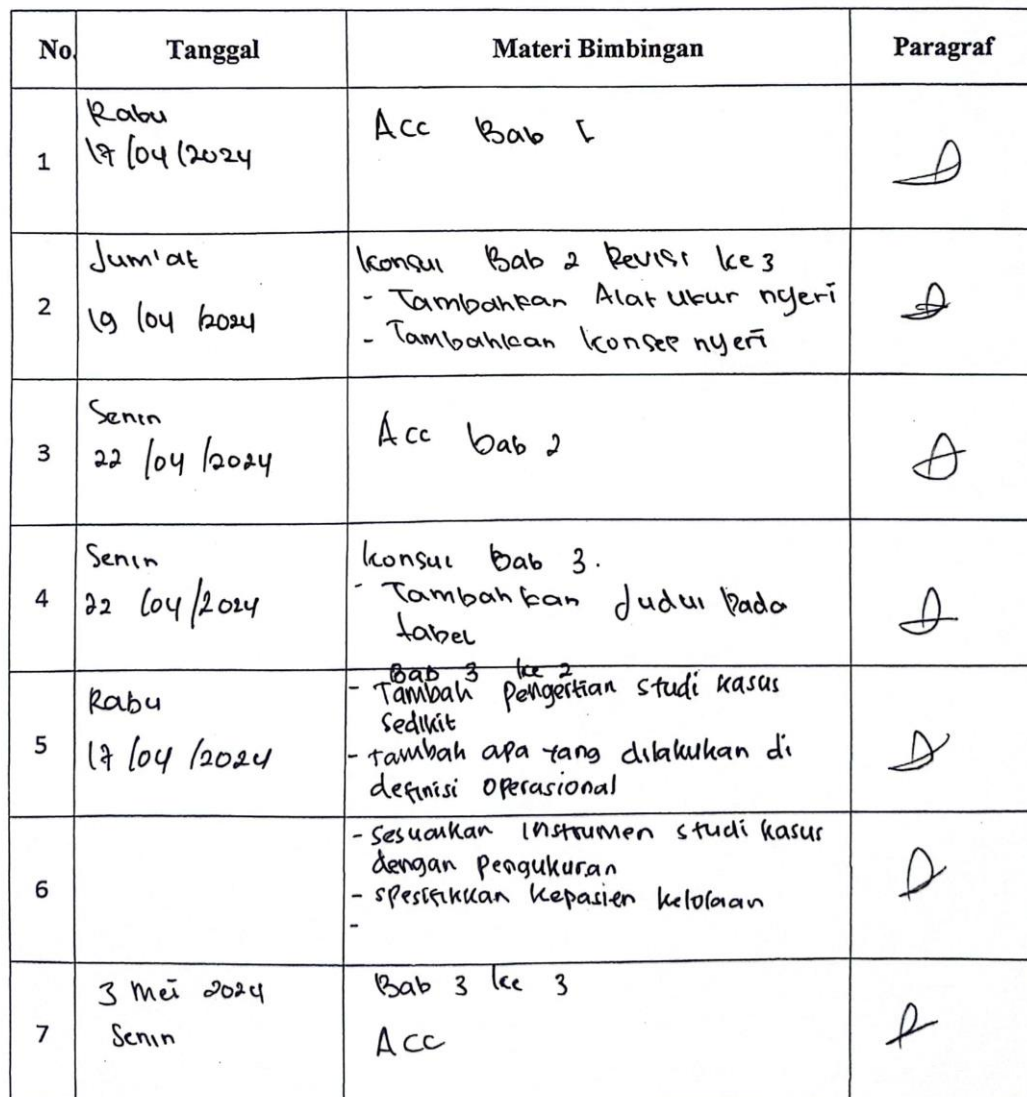 No. Tanggal Materi Bimbingan Paragraf
1
Rabu
17/04/2024
Acc Bab I
2
Jum'at
19/04/2024
Konsul Bab 2 Revisi ke 3
- Tambahkan Alat Ukur nyeri
- Tambahkan konsep nyeri
3
Senin
22/04/2024
Acc bab 2
4
Senin
22/04/2024
Konsul Bab 3.
- Tambahkan Judul Pada
tabel
5
Rabu
17/04/2024
Bab 3 ke 2
- Tambah Pengertian studi kasus
sedikit
- Tambah apa yang dilakukan di
definisi operasional
6
- Sesuaikan Instrumen studi kasus
dengan Pengukuran
- Spesifikkan kepasien kelolaan
-
7
3 Mei 2024
Senin
Bab 3 ke 3
Acc